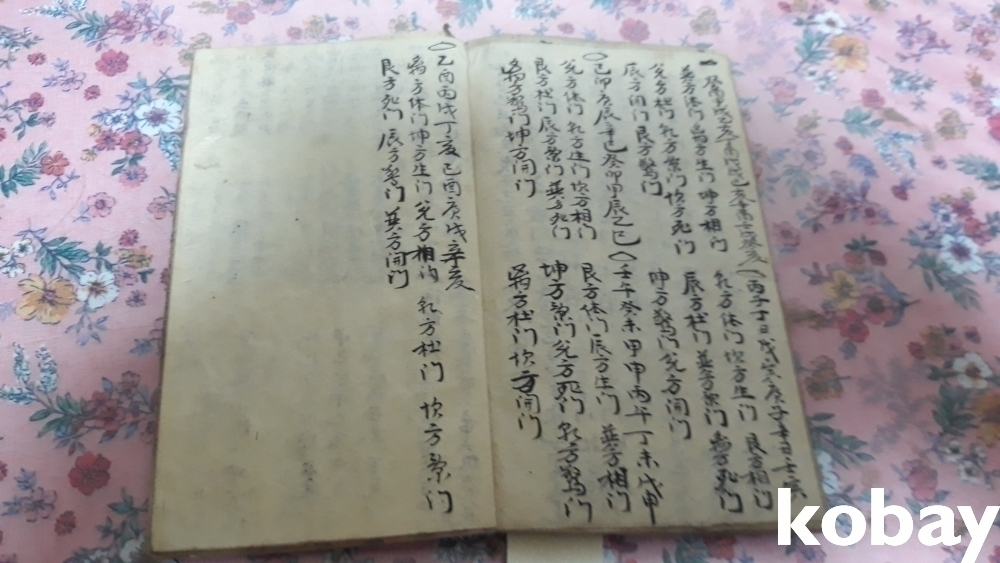 丙子丁丑戊寅庚子辛丑壬寅
巽方休门 离方生门 坤方相门
兌方杜门 乾方景门 坎方死门
辰方開门 艮方驚门
乾方休门 坎方生门 艮方相门
辰方杜门 巽方景门 离方死门
坤方驚门 兌方開门
己卯庚辰辛巳癸卯甲辰乙巳
兌方休门 乾方生门 坎方相门
艮方杜门 辰方景门 巽方死门
离方驚门 坤方開门
壬午癸未甲申丙午丁未戊申
艮方休门 辰方生门 巽方相门
坤方景门 兌方死门 乾方驚门
离方杜门 坎方開门
乙酉丙戌丁亥己酉庚戌辛亥
离方休门 坤方生门 兌方相门 乾方杜门 坎方景门
艮方死门 辰方驚门 巽方開门
kobay